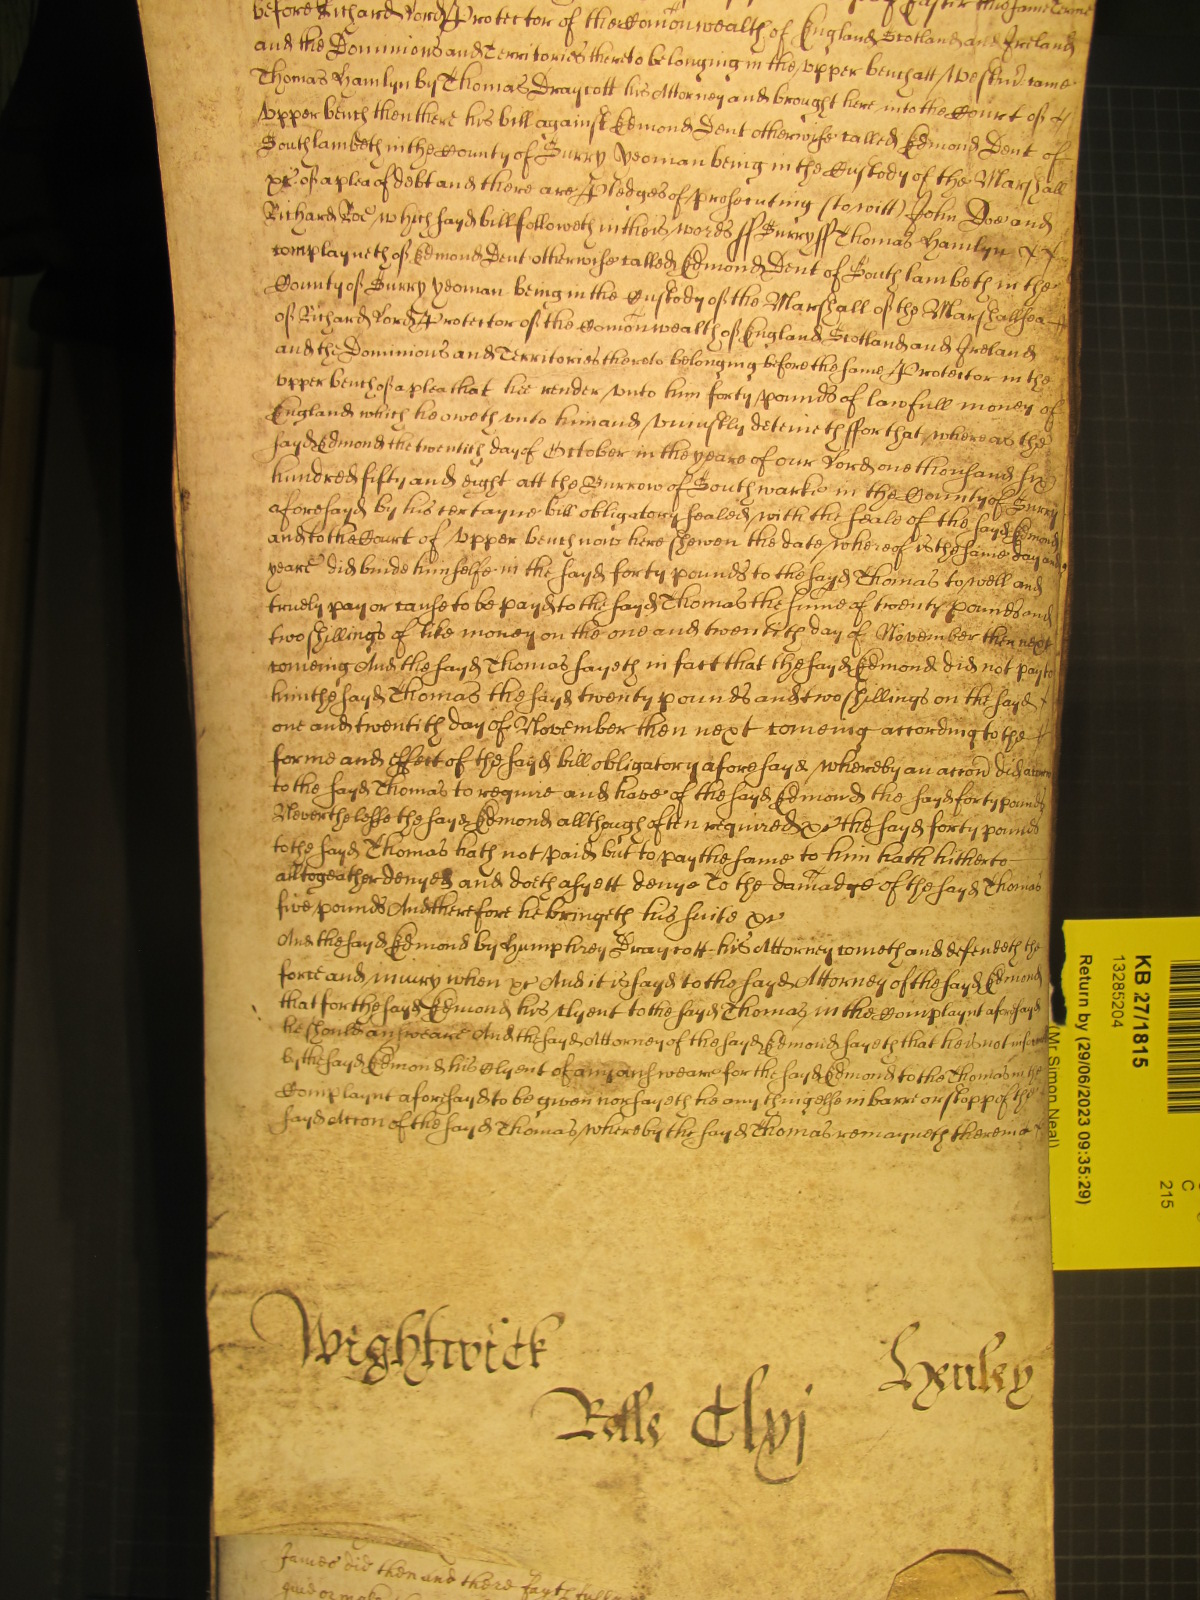 before Richard Lord Protector of the Comonwealth of England Scotland and Ireland
and the Dominions and Territories thereto belonging in the upper bench att Westm̃ came
Thomas Hamlyn by Thomas Draycott his Attorney and brought here into the Court of
upper bench then there his bill against Edmond Dent otherwise called Edmond Dent of
Southlambeth in the County of Surry yeoman being in the Custody of the Marshall
&c of a plea of debt and there are Pledges of prosecuting (to witt) John Doe and
Richard Roe which sayd bill followeth in theis words ss Surry ss Thomas Hamlyn
complayneth of Edmond Dent otherwise called Edmond Dent of South lambeth in the
County of Surry yeoman being in the Custody of the Marshall of the Marshallsea
of Richard Lord Protector of the Comonwealth of England Scotland and Ireland
and the Dominions and Territories thereto belonging before the same Protector in the
upper bench of a plea that hee render unto him forty pounds of lawfull money of
England which he oweth unto him and uniustly deteineth ffor that whereas the
sayd Edmond the twentith day of October in the yeare of our Lord one thousand six
hundred fifty and eight att the Burrow of Southwarke in the County of Surry
aforesayd by his certayne bill obligatory sealed with the seale of the sayd Edmond
and to the Court of upper bench now here shewen the date whereof is the same day and
yeare did binde himselfe in the sayd forty pounds to the sayd Thomas to well and
truely pay or cause to be payd to the sayd Thomas the sume of twenty pounds and
two shillings of like money on the one and twentith day of November then next
comeing And the sayd Thomas sayeth in fact that the sayd Edmond did not pay to
him the sayd Thomas the sayd twenty pounds and two shillings on the sayd
one and twentith day of November then next comeing according to the
forme and effect of the sayd bill obligatory aforesayd whereby an accon did accrew
to the sayd Thomas to require and have of the sayd Edmond the sayd forty pounds
Neverthelesse the sayd Edmond allthough often required &c the sayd forty pounds
to the sayd Thomas hath not paid but to pay the same to him hath hitherto
alltogeather denyed and doth as yett denye To the damadge of the sayd Thomas
five pounds And therefore he bringeth his suite &c
And the sayd Edmond by Humphrey Draycott his Attorney cometh and defendeth the
force and iniury when &c And it is sayd to the sayd Attorney of the sayd Edmond
that for the sayd Edmond his Clyent to the sayd Thomas in the Complaynt aforesayd
he should answeare And the sayd Attorney of the sayd Edmond sayeth that he is not informed
by the sayd Edmond his Clyent of any answeare for the sayd Edmond to the Thomas in the
Complaynt aforesayd to be given nor sayeth he any thing else in barre or stopp of the
sayd accon of the sayd Thomas whereby the sayd Thomas remayneth therein
Wightwick
Henley
Rolle Clyj
James did then and there
KB 27/1815
13285204
Return by (29/06/2023 09:35:29)
(Mr Simon Neal)
C
215